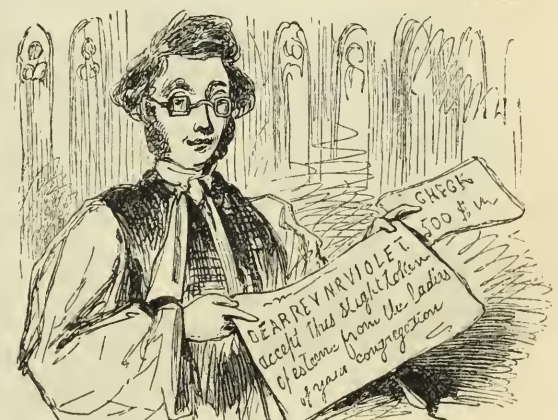 CHECK
500 $
DEAR REV MR VIOLET
accept this slight token
of esteem from the ladies
of your congregation